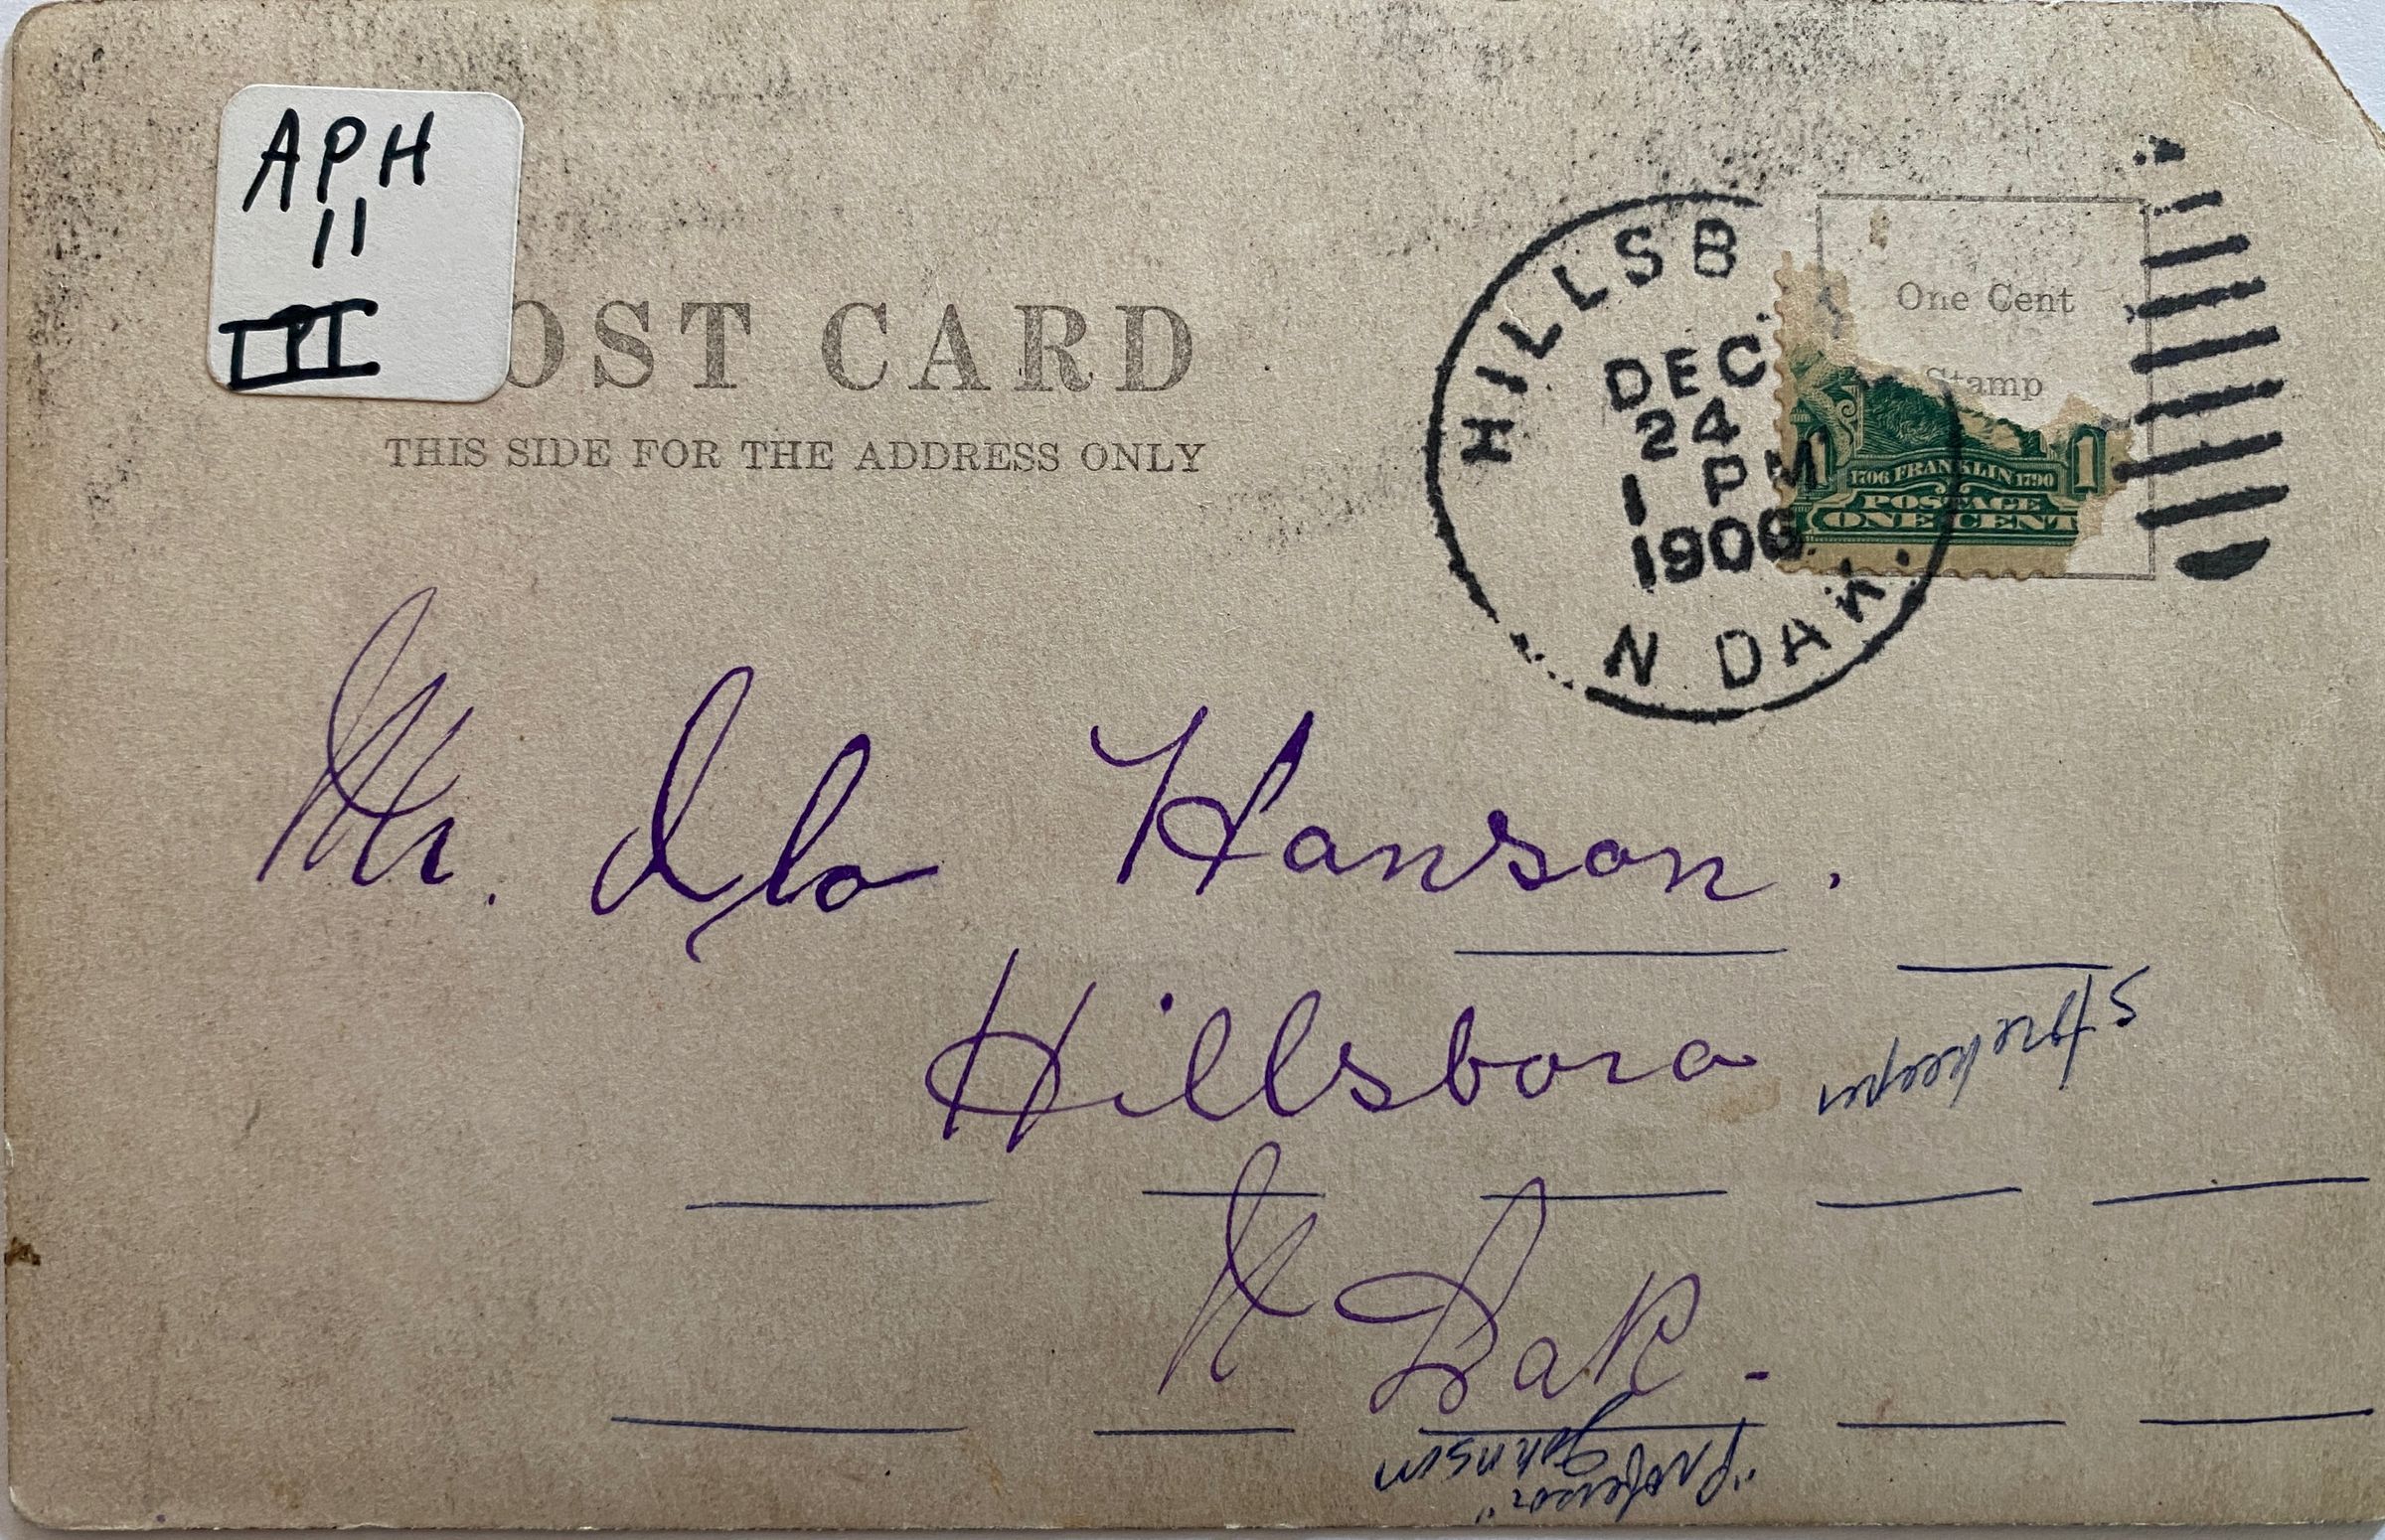 APH
11
III
OST CARD
THIS SIDE FOR THE ADDRESS ONLY
HILLSB
DEC.
24
1 PM
1906.
N. DAK.
One Cent
Stamp
1 1
1706 FRANKLIN 1790
POSTAGE
ONE CENT
Mr. Hanson.
Hillsboro
N Dak.
storekeeper
"Professor"
Johnson